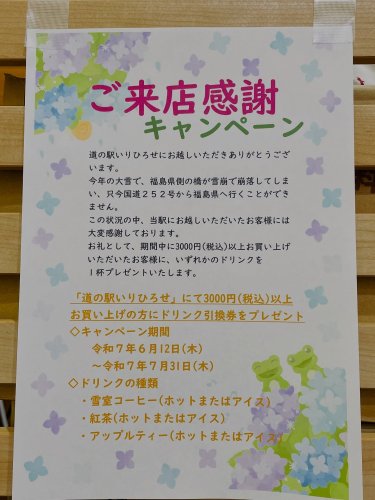 ご来店感謝
キャンペーン
道の駅いりひろせにお越しいただきありがとうござ
います。
今年の大雪で、福島県側の橋が雪崩で崩落してしま
い、只今国道252号から福島県へ行くことができ
ません。
この状況の中、当駅にお越しいただいたお客様には
大変感謝しております。
お礼として、期間中に3000円(税込)以上お買い上げ
いただいたお客様に、いずれかのドリンクを
1杯プレゼントいたします。
「道の駅いりひろせ」にて3000円(税込)以上
お買い上げの方にドリンク引換券をプレゼント
◇キャンペーン期間
令和7年6月12日(木)
～令和7年7月31日(木)
◇ドリンクの種類
・雪室コーヒー(ホットまたはアイス)
・紅茶(ホットまたはアイス)
・アップルティー(ホットまたはアイス)